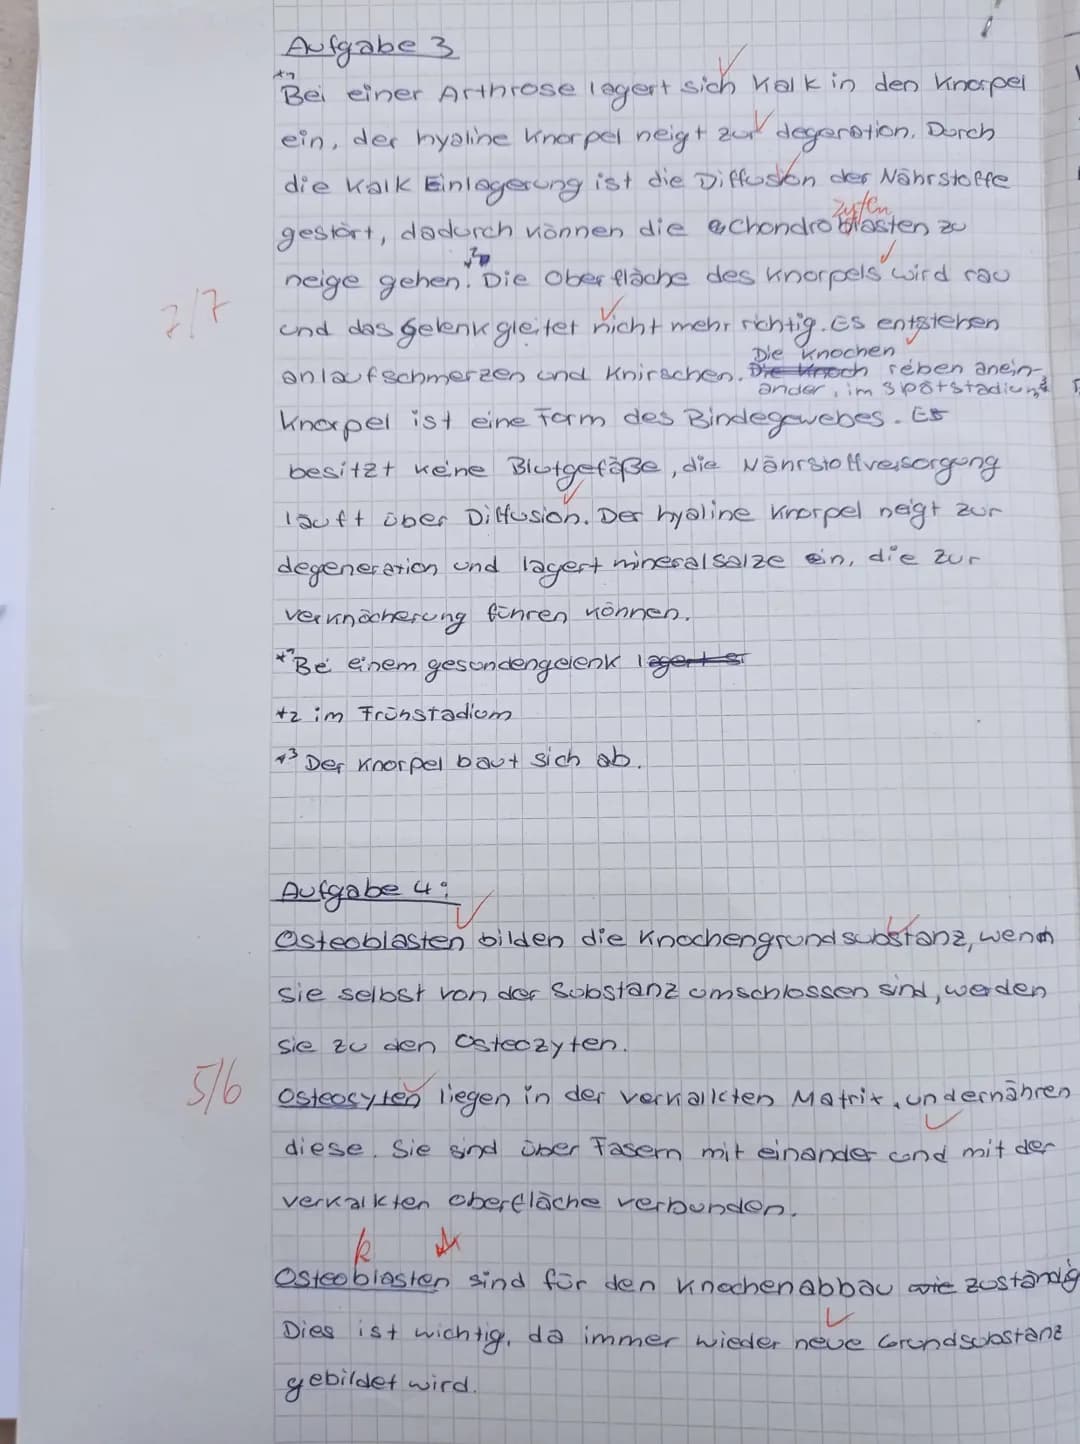 Aufgabe 3
*1 Bei einer Arthrose lagert sich Kalk in den Knorpel
ein, der hyaline Knorpel neigt zur degeration. Durch
die Kalk Einlagerung ist die Diffusion der Nährstoffe
zyten
gestört, dadurch können die Chondroblasten zu
*2
neige gehen. Die Oberfläche des Knorpels wird rau
7/7
und das Gelenk gleitet nicht mehr richtig. Es entstehen
Die Knochen
anlaufschmerzen und Knirschen. Die Knoch reben anein-
ander, im Spätstadium *3
Knorpel ist eine Form des Bindegewebes. Es
besitzt keine Blutgefäße, die Nährstoffversorgung
läuft über Diffusion. Der hyaline Knorpel neigt zur
degeneration und lagert mineralsalze ein, die zur
verknöcherung führen können.
*1 Bei einem gesundengelenk lagert s
*2 im Frühstadium
*3 Der Knorpel baut sich ab.
Aufgabe 4:
Osteoblasten bilden die Knochengrundsubstanz, wenn
sie selbst von der Substanz umschlossen sind, werden
sie zu den Osteozyten.
5/6
Osteosyten liegen in der verkalkten Matrix, und ernähren
diese. Sie sind über Fasern mit einander und mit der
verkalkten oberfläche verbunden.
k
Osteoblasten sind für den Knochenabbau zuständig
Dies ist wichtig, da immer wieder neue Grundsubstanz
gebildet wird.